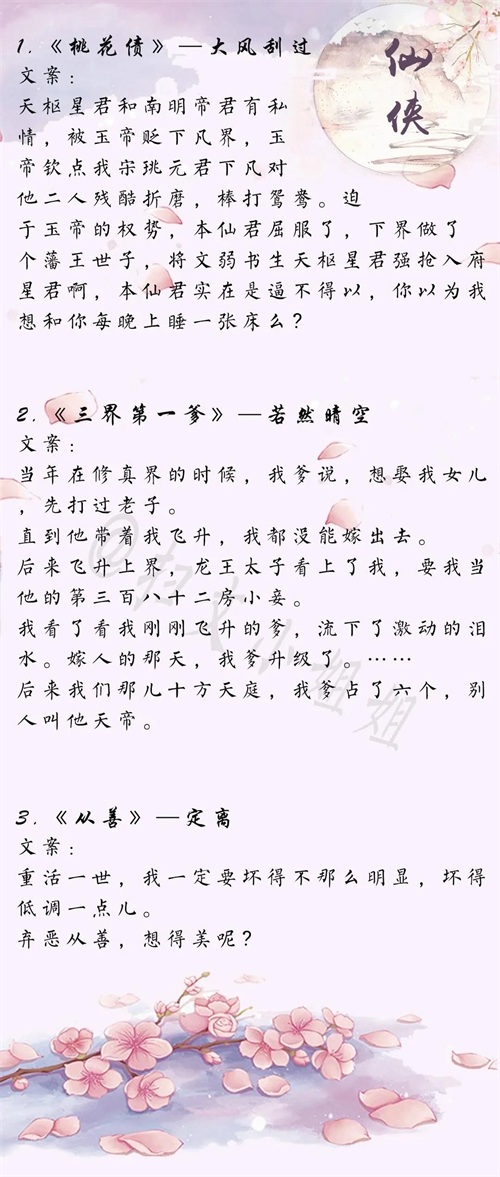 仙侠
1.《桃花债》—大风刮过
文案：
天枢星君和南明帝君有私
情，被玉帝贬下凡界，玉
帝钦点我宋珧元君下凡对
他二人残酷折磨，棒打鸳鸯。迫
于玉帝的权势，本仙君屈服了，下界做了
个藩王世子，将文弱书生天枢星君强抢入府
星君啊，本仙君实在是逼不得以，你以为我
想和你每晚上睡一张床么？
2.《三界第一爹》—若然晴空
文案：
当年在修真界的时候，我爹说，想娶我女儿
，先打过老子。
直到他带着我飞升，我都没能嫁出去。
后来飞升上界，龙王太子看上了我，要我当
他的第三百八十二房小妾。
我看了看我刚刚飞升的爹，流下了激动的泪
水。嫁人的那天，我爹升级了。……
后来我们那儿十方天庭，我爹占了六个，别
人叫他天帝。
3.《从善》—定离
文案：
重活一世，我一定要坏得不那么明显，坏得
低调一点儿。
弃恶从善，想得美呢？
@扣文小姐姐